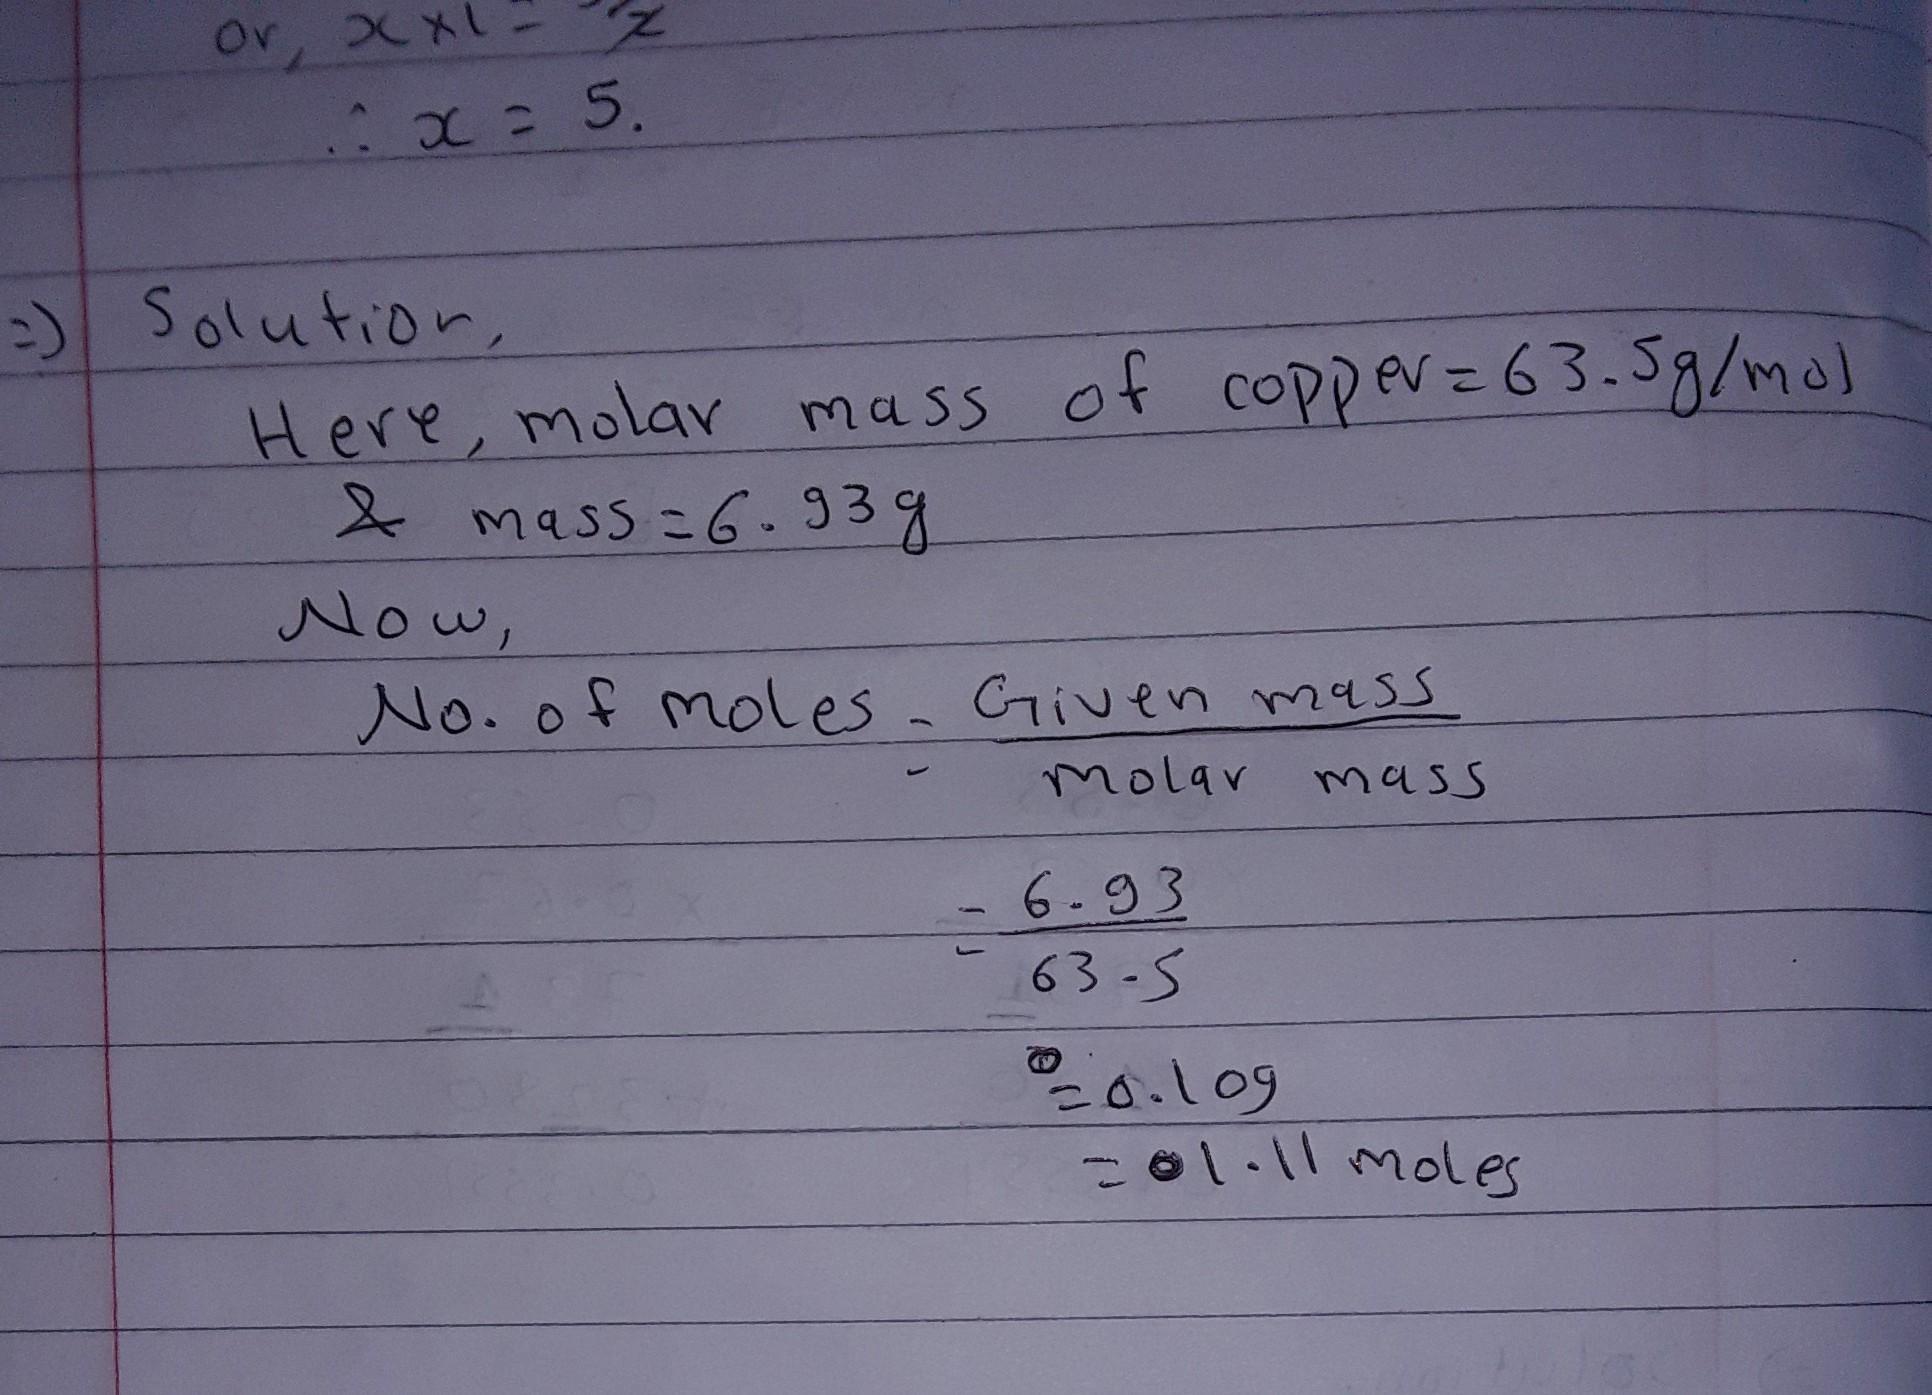 or, x×1 =
∴ x = 5.
=) Solution,
Here, molar mass of copper = 63.5g/mol
& mass = 6.93g
Now,
No. of moles = Given mass
molar mass
= 6.93
63.5
= 0.109
= 01.11 moles